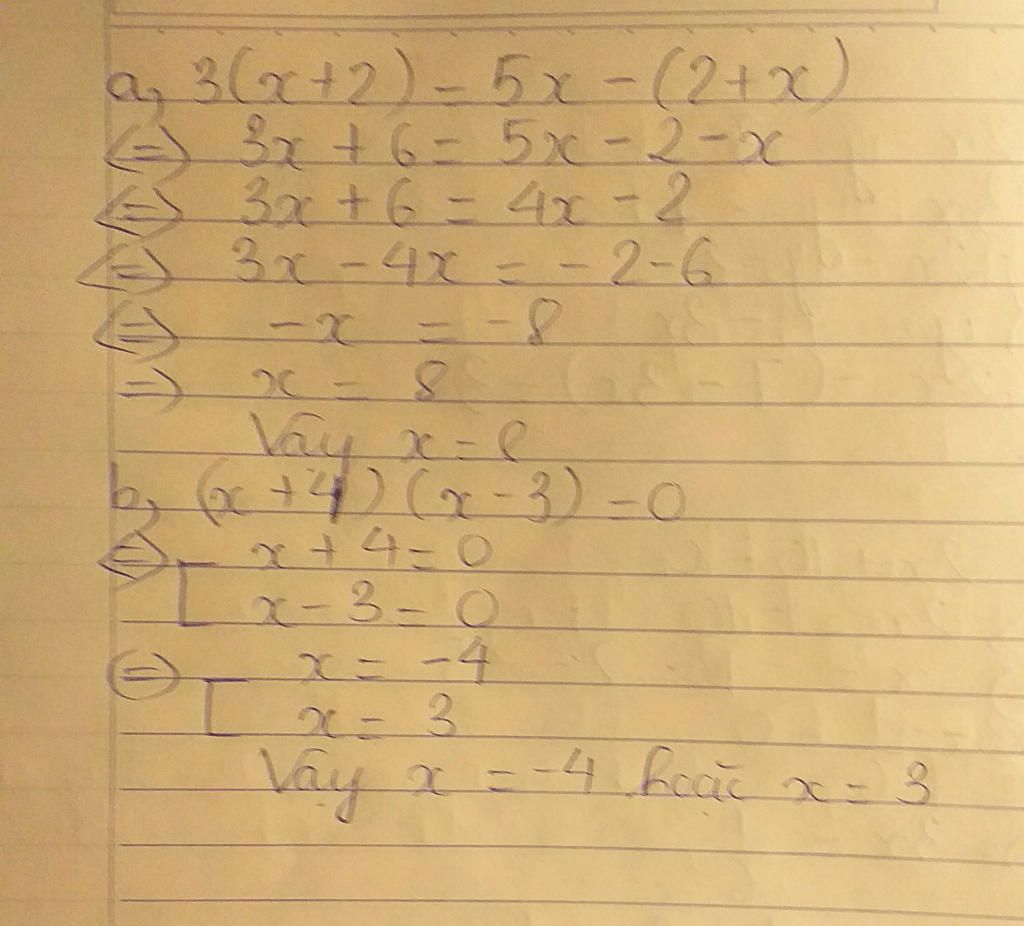 a, 3(x+2) = 5x - (2+x)
<=> 3x + 6 = 5x - 2 - x
<=> 3x + 6 = 4x - 2
<=> 3x - 4x = - 2 - 6
<=> -x = -8
=> x = 8
Vậy x = 8
b, (x + 4) (x - 3) = 0
<=> [ x + 4 = 0
x - 3 = 0
<=> [ x = -4
x = 3
Vậy x = -4 hoặc x = 3